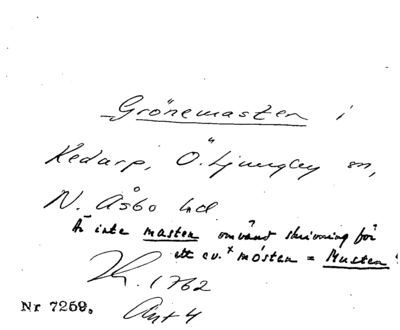 Grönemasten i
Kedarp, Ö. Ljungby sn,
N. Åsbo hd
Är inte masten omvänd skrivning för
ett ev. ˣmósten = Musten"
1762
Nr 7259.